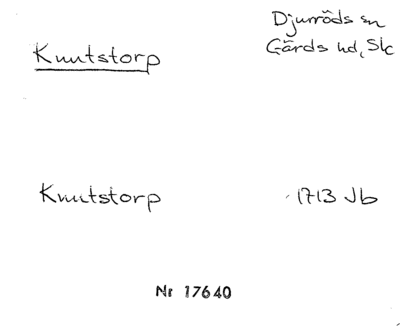 Djurröds sn
Knutstorp
Gärds hd, Sk
Knutstorp
1713 Jb
Nr 17640